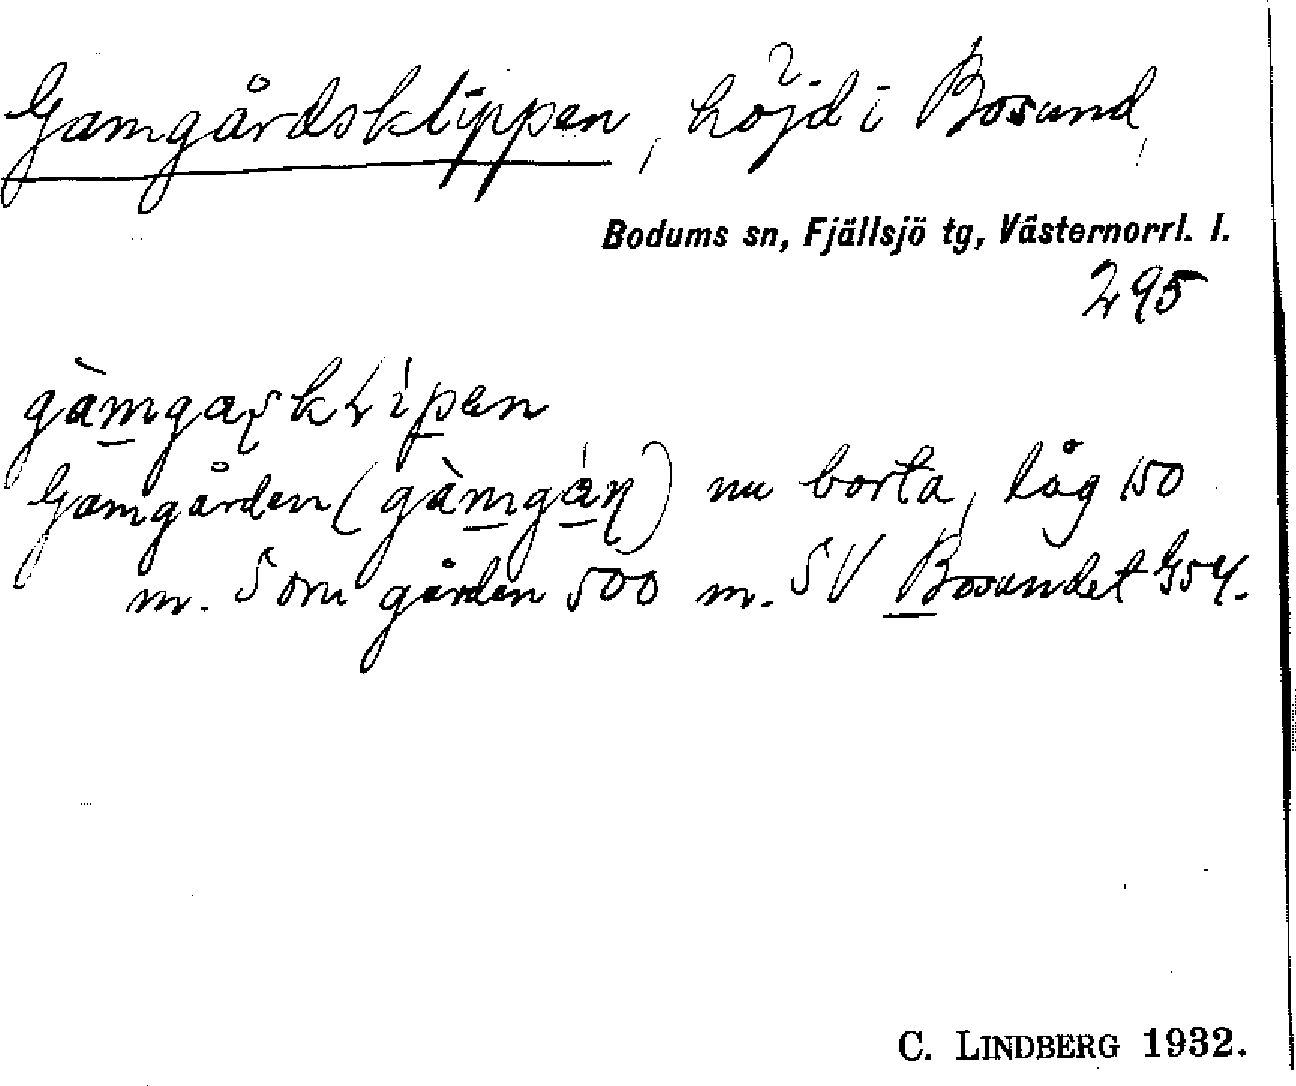 Gamgårdsklippen, höjd i Bosund,
Bodums sn, Fjällsjö tg, Västernorrl. l.
295
gàmgaʂkḷipen
Gamgården (gàmgáɳ) nu borta, låg 150
m. S om gården 500 m. SV Bosundet
C. LINDBERG 1932.